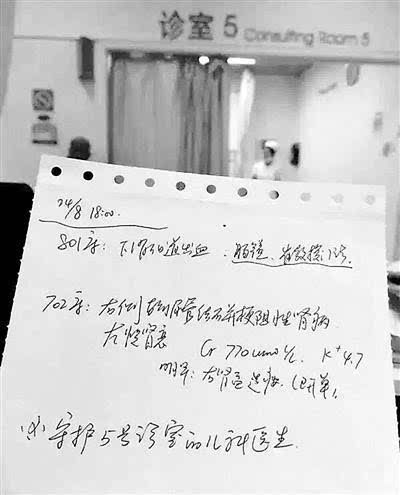 诊室 5 Consulting Room 5
24/8 18:00.
801床: 下消化道出血. 肠镜.
702床: 右侧输尿管结石并梗阻性肾病
肾衰
Cr 770 umol/L. K⁺ 4.7
明早: 右肾造瘘. (已开单)
守护5号诊室的儿科医生.